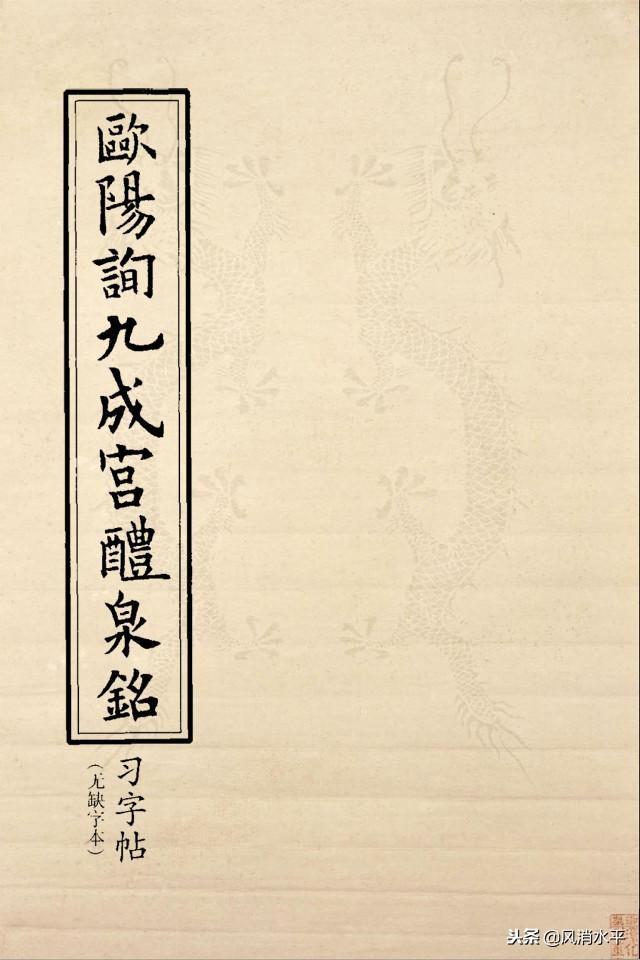 歐陽詢九成宮醴泉銘
习字帖
（无缺字本）
头条 @风消水平